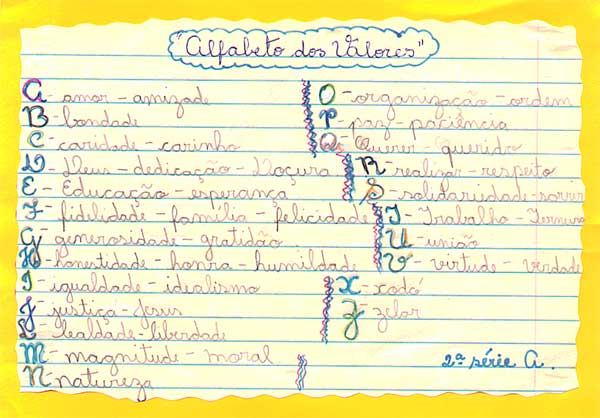 "Alfabeto dos Valores"
A - amor - amizade
B - bondade
C - caridade - carinho
D - Deus - dedicação - Doçura
E - Educação - esperança
F - fidilidade - família - felicidade
G - generosidade - gratidão
H - honestidade - honra - humildade
I - igualdade - idealismo
J - justiça - Jesus
L - lealdade - liberdade
M - magnitude - moral
N - natureza
O - organização - ordem
P - paz - paciência
Q - Querer - querido
R - realizar - respeito
S - solidariedade - sorrir
T - Trabalho - Ternura
U - união
V - virtude - verdade
X - xodó
Z - zelar
2ª série A.